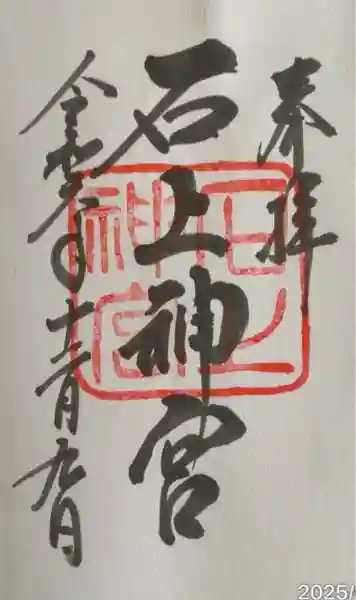 奉拝
石上神宮
石上神宮
令和元年十二月九日
2025/